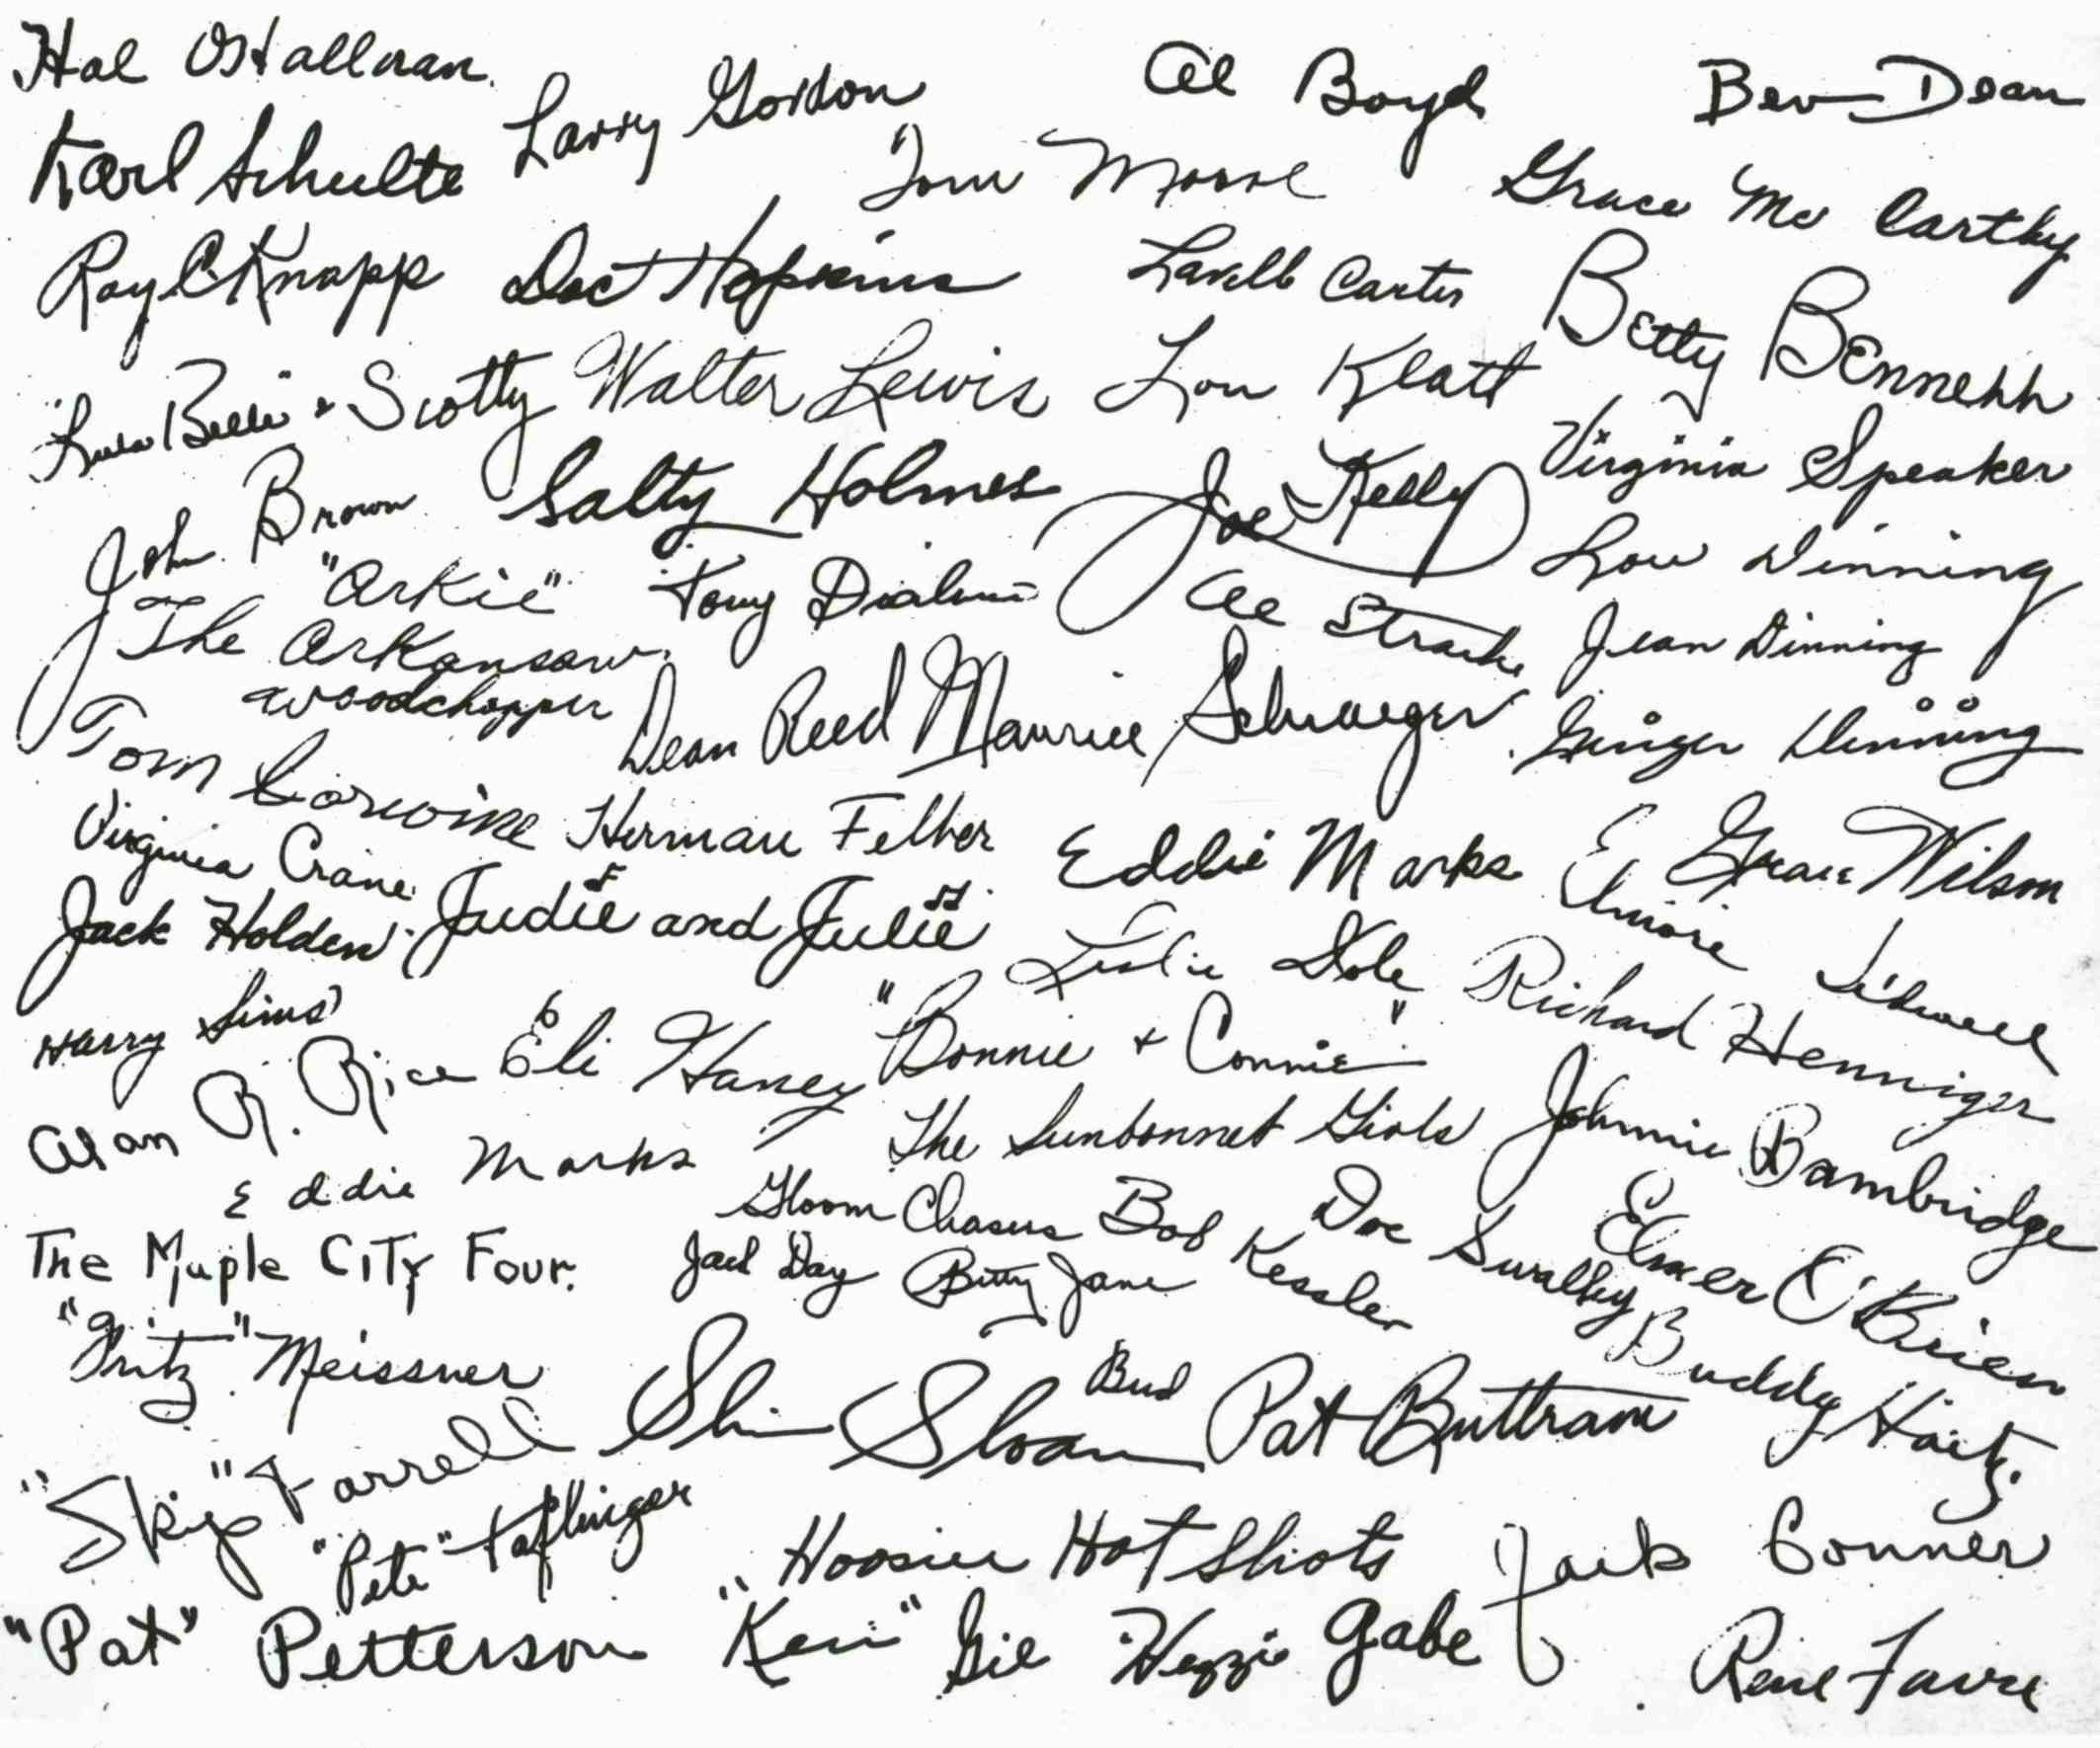 Hal O'Halloran
Larry Gordon
Al Boyd
Bev Dean
Karl Schulte
Tom Moore
Grace McCarthy
Ray C Knapp
Doc Hopkins
Lavell Carter
Betty Bennett
"Lula Belle" & Scotty
Walter Lewis
Lou Klatt
Virginia Speaker
John Brown
Salty Holmes
Joe Kelly
Lou Dinning
"Arkie"
The Arkansaw
Woodchopper
Tony
Al Strache
Jean Dinning
Tom Corwine
Dean Reed
Maurice Schraeger
Ginger Dinning
Virginia Crane
Herman Felber
Eddie Marks
Grace Wilson
Jack Holden
Judie and Julie
Elmore
Harry Sims
Eli Haney
"Bonnie + Connie"
Richard Henniger
Alan R. Rice
The Sunbonnet Girls
Johnnie Bambridge
Eddie Marks
Gloom Chasers
Bob Kessler
Doc Swalley
Elmer O'Brien
The Maple City Four.
Jack Day
Betty Jane
Buddy
"Fritz" Meissner
Slim Sloan
Bud
Pat Buttram
"Skip" Farrell
"Pete" Taflinger
Hoosier Hot Shots
Jack Conner
"Pat" Petterson
"Ken" Gil Hezzie Gabe
Rene Favre